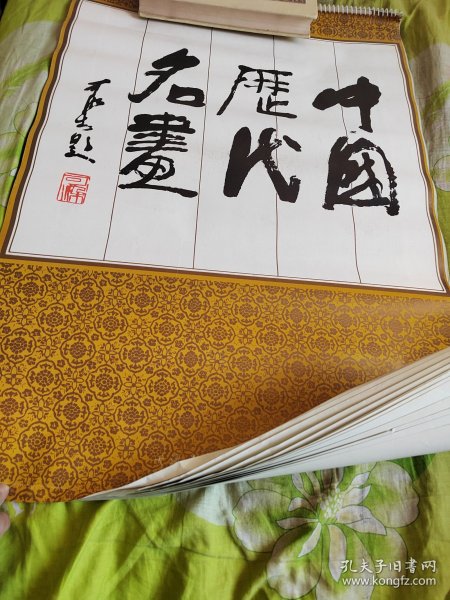 中國
歷代
名畫
题
孔夫子旧书网
www.kongfz.com